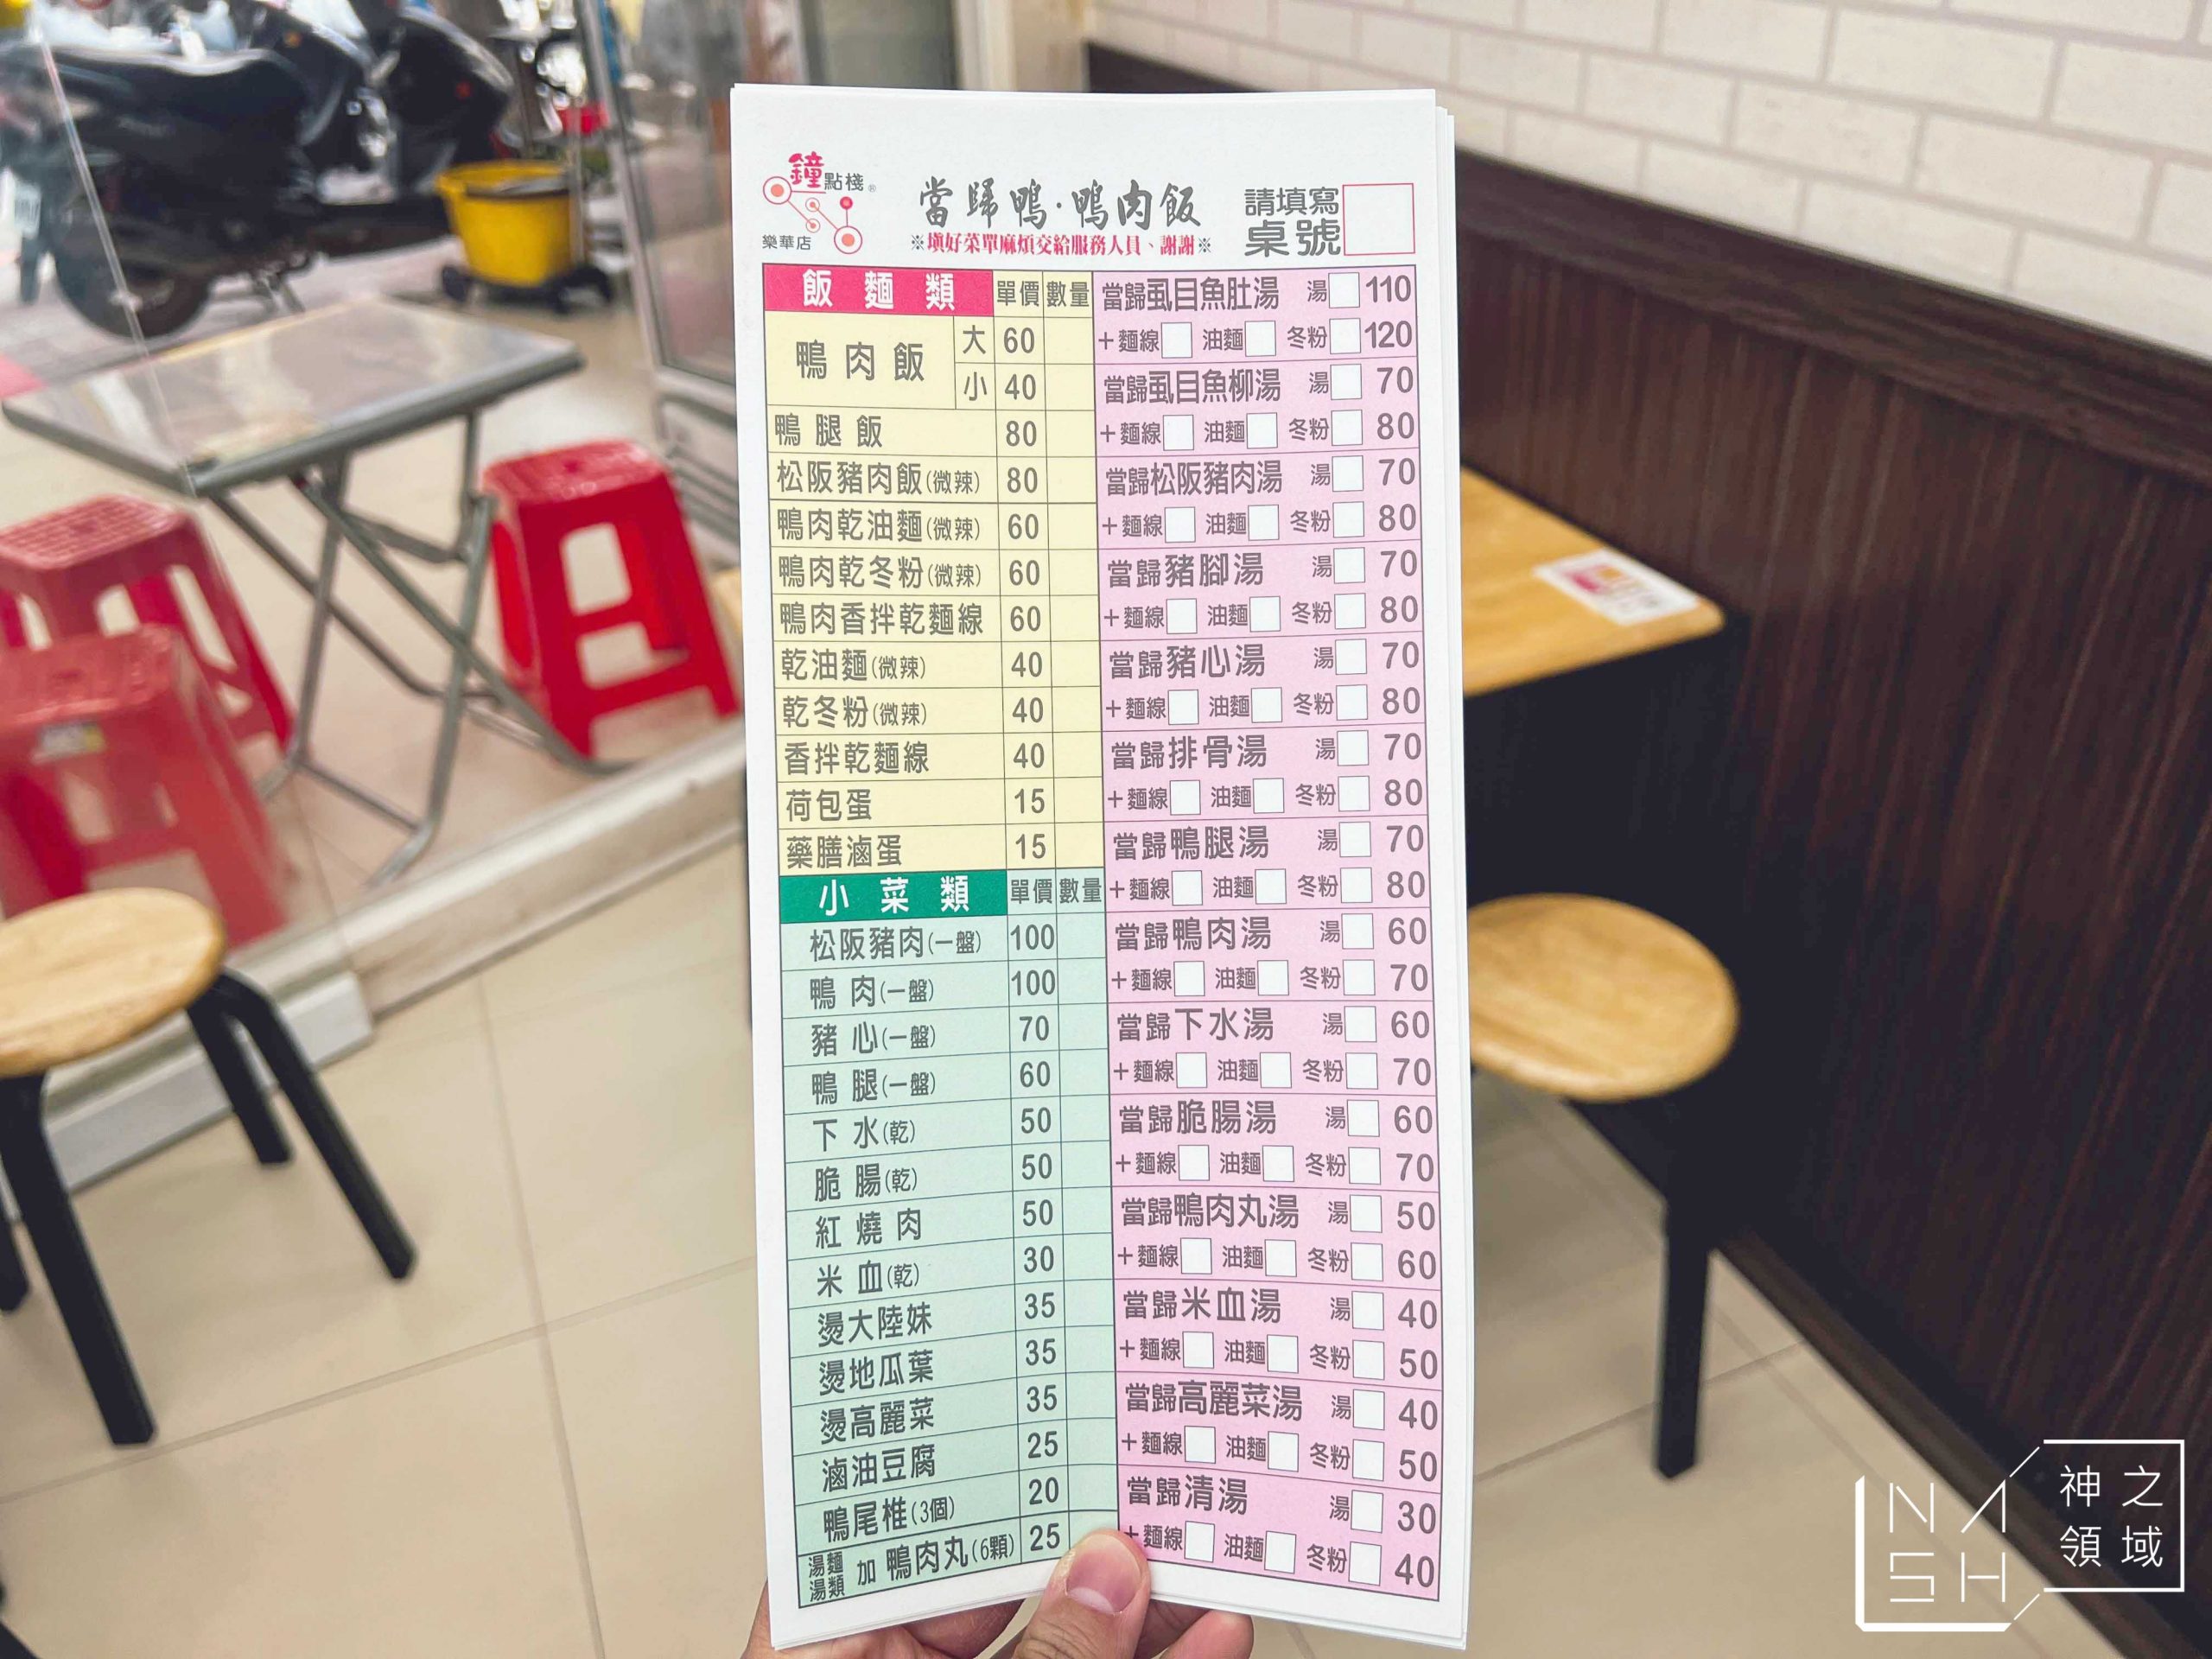 鐘點棧®
樂華店
當歸鴨·鴨肉飯
※填好菜單麻煩交給服務人員、謝謝※
請填寫
桌號
飯麵類 單價 數量
鴨肉飯 大 60
小 40
鴨腿飯 80
松阪豬肉飯(微辣) 80
鴨肉乾油麵(微辣) 60
鴨肉乾冬粉(微辣) 60
鴨肉香拌乾麵線 60
乾油麵(微辣) 40
乾冬粉(微辣) 40
香拌乾麵線 40
荷包蛋 15
藥膳滷蛋 15
小菜類 單價 數量
松阪豬肉(一盤) 100
鴨肉(一盤) 100
豬心(一盤) 70
鴨腿(一盤) 60
下水(乾) 50
脆腸(乾) 50
紅燒肉 50
米血(乾) 30
燙大陸妹 35
燙地瓜葉 35
燙高麗菜 35
滷油豆腐 25
鴨尾椎(3個) 20
湯麵
湯類 加 鴨肉丸(6顆) 25
當歸虱目魚肚湯 湯 110
+麵線 油麵 冬粉 120
當歸虱目魚柳湯 湯 70
+麵線 油麵 冬粉 80
當歸松阪豬肉湯 湯 70
+麵線 油麵 冬粉 80
當歸豬腳湯 湯 70
+麵線 油麵 冬粉 80
當歸豬心湯 湯 70
+麵線 油麵 冬粉 80
當歸排骨湯 湯 70
+麵線 油麵 冬粉 80
當歸鴨腿湯 湯 70
+麵線 油麵 冬粉 80
當歸鴨肉湯 湯 60
+麵線 油麵 冬粉 70
當歸下水湯 湯 60
+麵線 油麵 冬粉 70
當歸脆腸湯 湯 60
+麵線 油麵 冬粉 70
當歸鴨肉丸湯 湯 50
+麵線 油麵 冬粉 60
當歸米血湯 湯 40
+麵線 油麵 冬粉 50
當歸高麗菜湯 湯 40
+麵線 油麵 冬粉 50
當歸清湯 湯 30
+麵線 油麵 冬粉 40
NASH
神之
領域